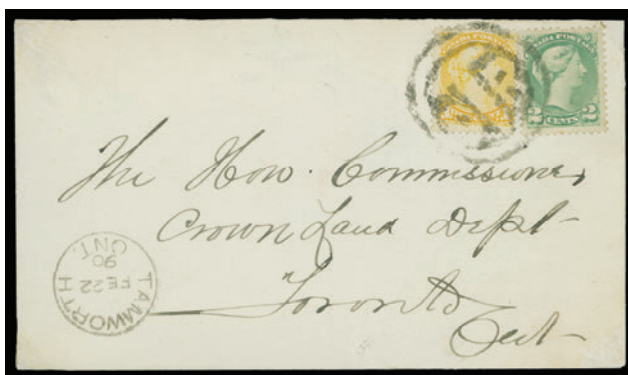 CANADA POSTAGE
2 CENTS 2
The Hon. Commissioner
Crown Land Dept
Toronto
Ont
TAMWORTH
FE 22
90
ONT.